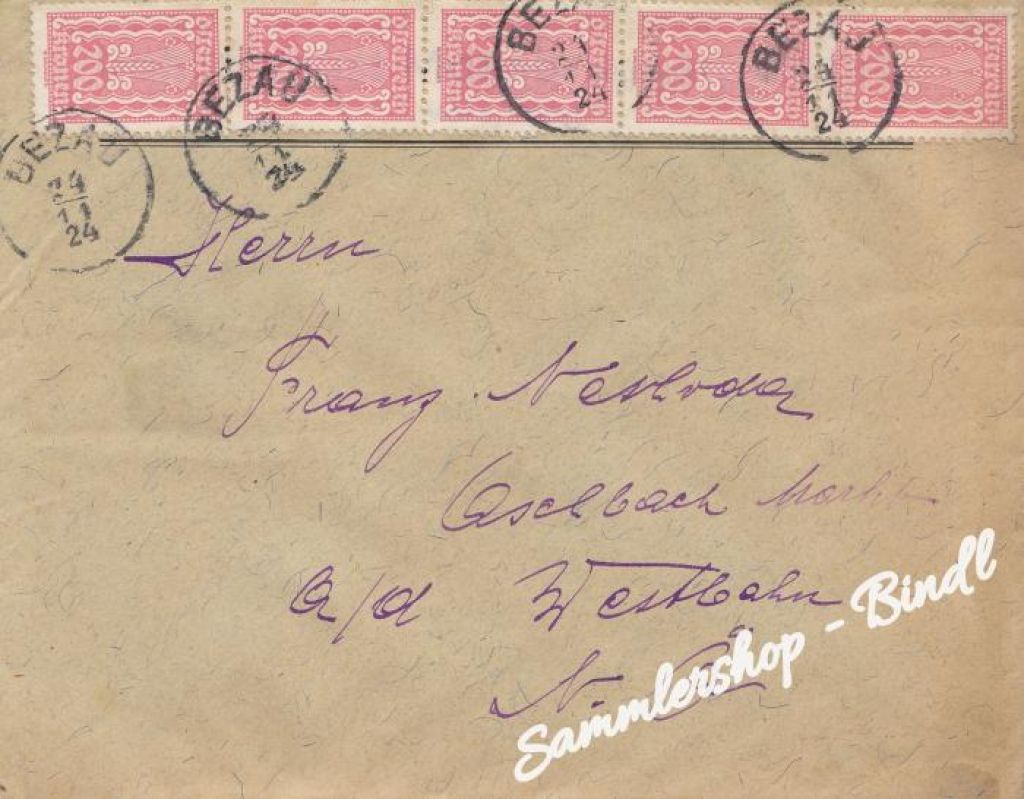 200 200 200 200 200
BEZAU 24 11 24
BEZAU 24 11 24
BEZAU 24 11 24
BEZAU 24 11 24
Herrn
Franz
Aschbach Markt
a/d Westbahn
N. Ö.
Sammlershop - Bindl